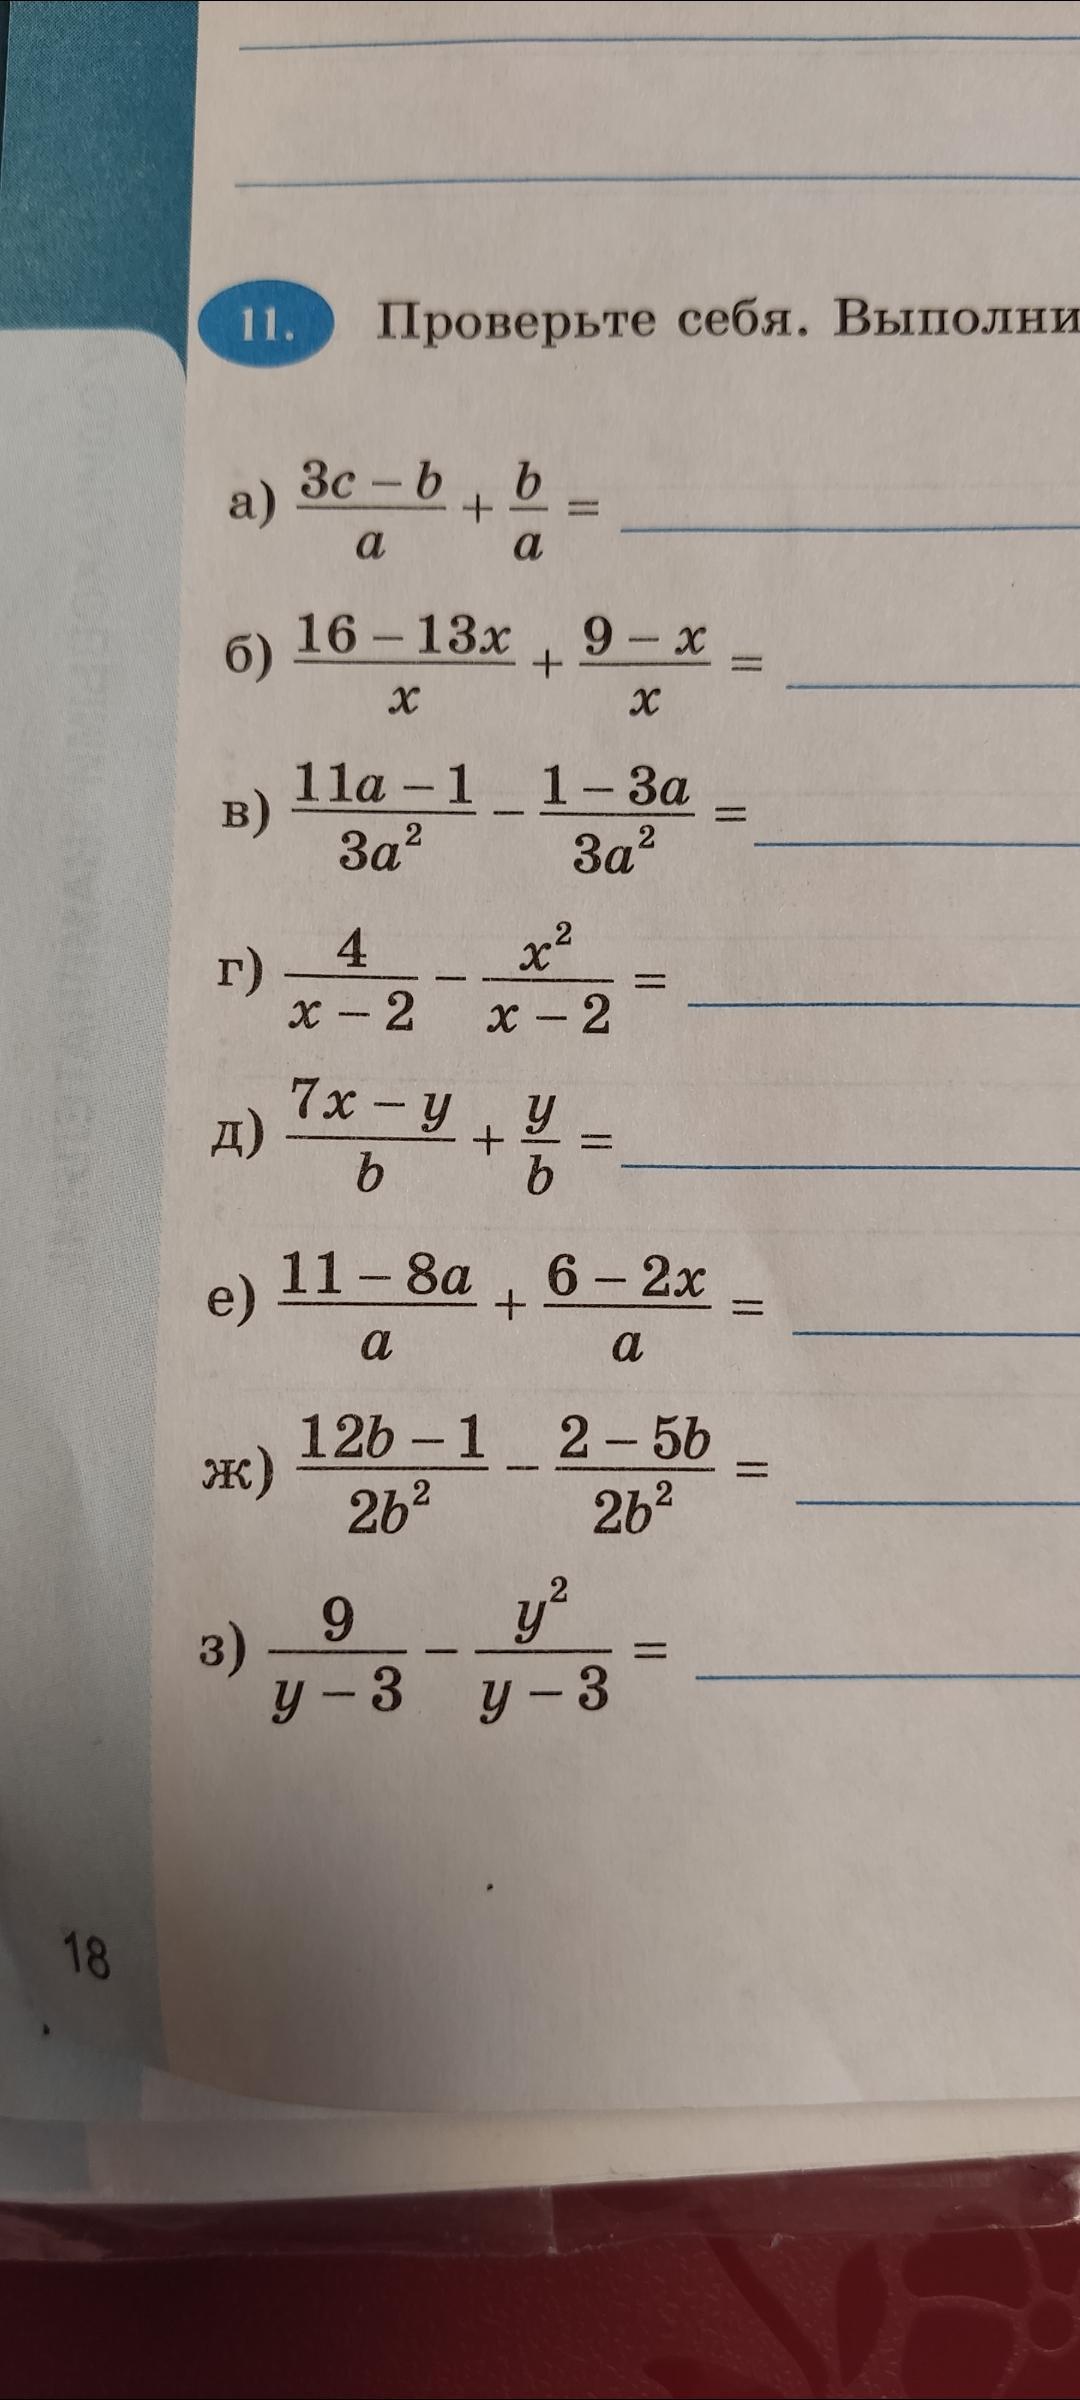 11. Проверьте себя. Выполни
а) \frac{3c - b}{a} + \frac{b}{a} =
б) \frac{16 - 13x}{x} + \frac{9 - x}{x} =
в) \frac{11a - 1}{3a^2} - \frac{1 - 3a}{3a^2} =
г) \frac{4}{x - 2} - \frac{x^2}{x - 2} =
д) \frac{7x - y}{b} + \frac{y}{b} =
е) \frac{11 - 8a}{a} + \frac{6 - 2x}{a} =
ж) \frac{12b - 1}{2b^2} - \frac{2 - 5b}{2b^2} =
з) \frac{9}{y - 3} - \frac{y^2}{y - 3} =
18